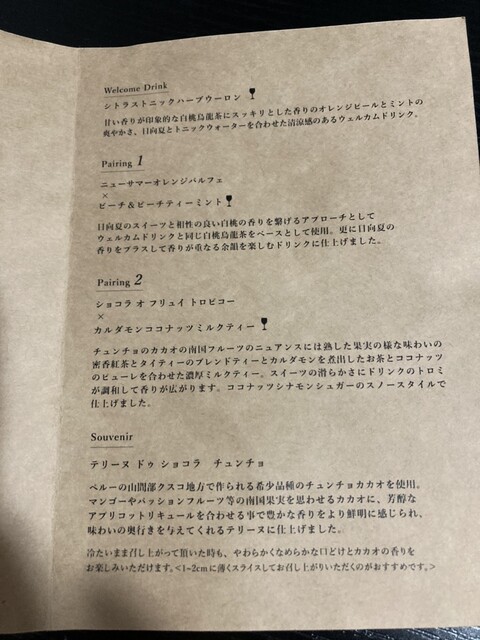 Welcome Drink
シトラストニックハーブウーロン
甘い香りが印象的な白桃烏龍茶にスッキリとした香りのオレンジピールとミントの
爽やかさ、日向夏とトニックウォーターを合わせた清涼感のあるウェルカムドリンク。
Pairing 1
ニューサマーオレンジパルフェ
×
ピーチ&ピーチティーミント
日向夏のスイーツと相性の良い白桃の香りを繋げるアプローチとして
ウェルカムドリンクと同じ白桃烏龍茶をベースとして使用。更に日向夏の
香りをプラスして香りが重なる余韻を楽しむドリンクに仕上げました。
Pairing 2
ショコラ オ フリュイ トロピコー
×
カルダモンココナッツミルクティー
チュンチョのカカオの南国フルーツのニュアンスには熟した果実の様な味わいの
密香紅茶とタイティーのブレンドティーとカルダモンを煮出したお茶とココナッツ
のピューレを合わせた濃厚ミルクティー。スイーツの滑らかさにドリンクのトロミ
が調和して香りが広がります。ココナッツシナモンシュガーのスノースタイルで
仕上げました。
Souvenir
テリーヌ ドゥ ショコラ チュンチョ
ペルーの山間部クスコ地方で作られる希少品種のチュンチョカカオを使用。
マンゴーやパッションフルーツ等の南国果実を思わせるカカオに、芳醇な
アプリコットリキュールを合わせる事で豊かな香りをより鮮明に感じられ、
味わいの奥行きを与えてくれるテリーヌに仕上げました。
冷たいまま召し上がって頂いた時も、やわらかくなめらかな口どけとカカオの香りを
お楽しみいただけます。<1-2cmに薄くスライスしてお召し上がりいただくのがおすすめです。>